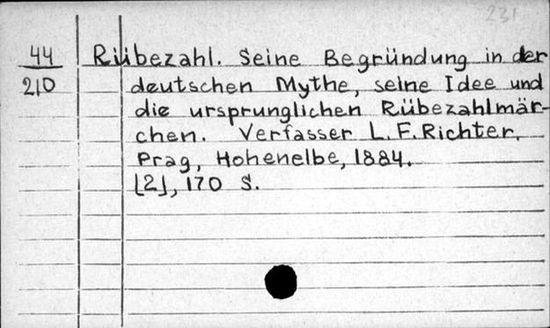 231
44 Rübezahl. Seine Begründung in der
210 deutschen Mythe, seine Idee und
die ursprunglichen Rübezahlmär-
chen. Verfasser L.F.Richter.
Prag, Hohenelbe, 1884.
[2], 170 S.